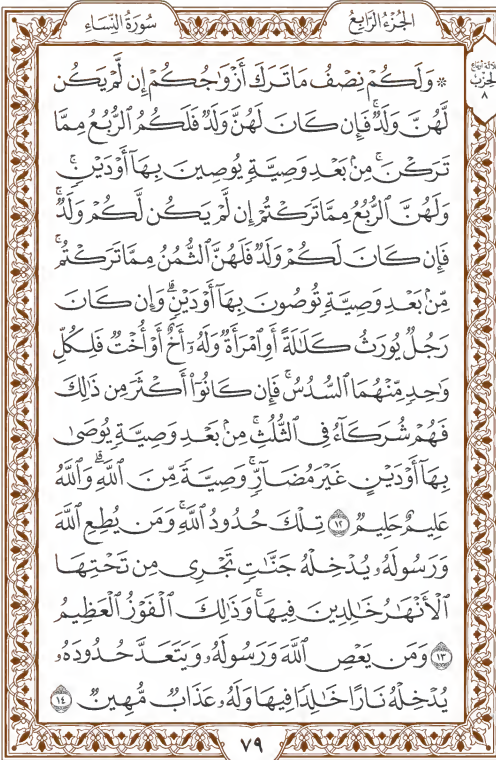 الجُزْءُ الرَّابِعُ
سُورَةُ النِّسَاءِ
ثلاثة أرباع
الحزب
٨
۞ وَلَكُمْ نِصْفُ مَا تَرَكَ أَزْوَٰجُكُمْ إِن لَّمْ يَكُن
لَّهُنَّ وَلَدٌۚ فَإِن كَانَ لَهُنَّ وَلَدٌ فَلَكُمُ ٱلرُّبُعُ مِمَّا
تَرَكْنَۚ مِنۢ بَعْدِ وَصِيَّةٍ يُوصِينَ بِهَآ أَوْ دَيْنٍۚ
وَلَهُنَّ ٱلرُّبُعُ مِمَّا تَرَكْتُمْ إِن لَّمْ يَكُن لَّكُمْ وَلَدٌۚ
فَإِن كَانَ لَكُمْ وَلَدٌ فَلَهُنَّ ٱلثُّمُنُ مِمَّا تَرَكْتُمۚ
مِّنۢ بَعْدِ وَصِيَّةٍ تُوصُونَ بِهَآ أَوْ دَيْنٍۗ وَإِن كَانَ
رَجُلٌ يُورَثُ كَلَٰلَةً أَوِ ٱمْرَأَةٌ وَلَهُۥٓ أَخٌ أَوْ أُخْتٌ فَلِكُلِّ
وَٰحِدٍ مِّنْهُمَا ٱلسُّدُسُۚ فَإِن كَانُوٓا۟ أَكْثَرَ مِن ذَٰلِكَ
فَهُمْ شُرَكَآءُ فِى ٱلثُّلُثِۚ مِنۢ بَعْدِ وَصِيَّةٍ يُوصَىٰ
بِهَآ أَوْ دَيْنٍ غَيْرَ مُضَآرٍّۚ وَصِيَّةً مِّنَ ٱللَّهِۗ وَٱللَّهُ
عَلِيمٌ حَلِيمٌ ١٢ تِلْكَ حُدُودُ ٱللَّهِۚ وَمَن يُطِعِ ٱللَّهَ
وَرَسُولَهُۥ يُدْخِلْهُ جَنَّٰتٍ تَجْرِى مِن تَحْتِهَا
ٱلْأَنْهَٰرُ خَٰلِدِينَ فِيهَاۚ وَذَٰلِكَ ٱلْفَوْزُ ٱلْعَظِيمُ
١٣ وَمَن يَعْصِ ٱللَّهَ وَرَسُولَهُۥ وَيَتَعَدَّ حُدُودَهُۥ
يُدْخِلْهُ نَارًا خَٰلِدًا فِيهَا وَلَهُۥ عَذَابٌ مُّهِينٌ ١٤
٧٩